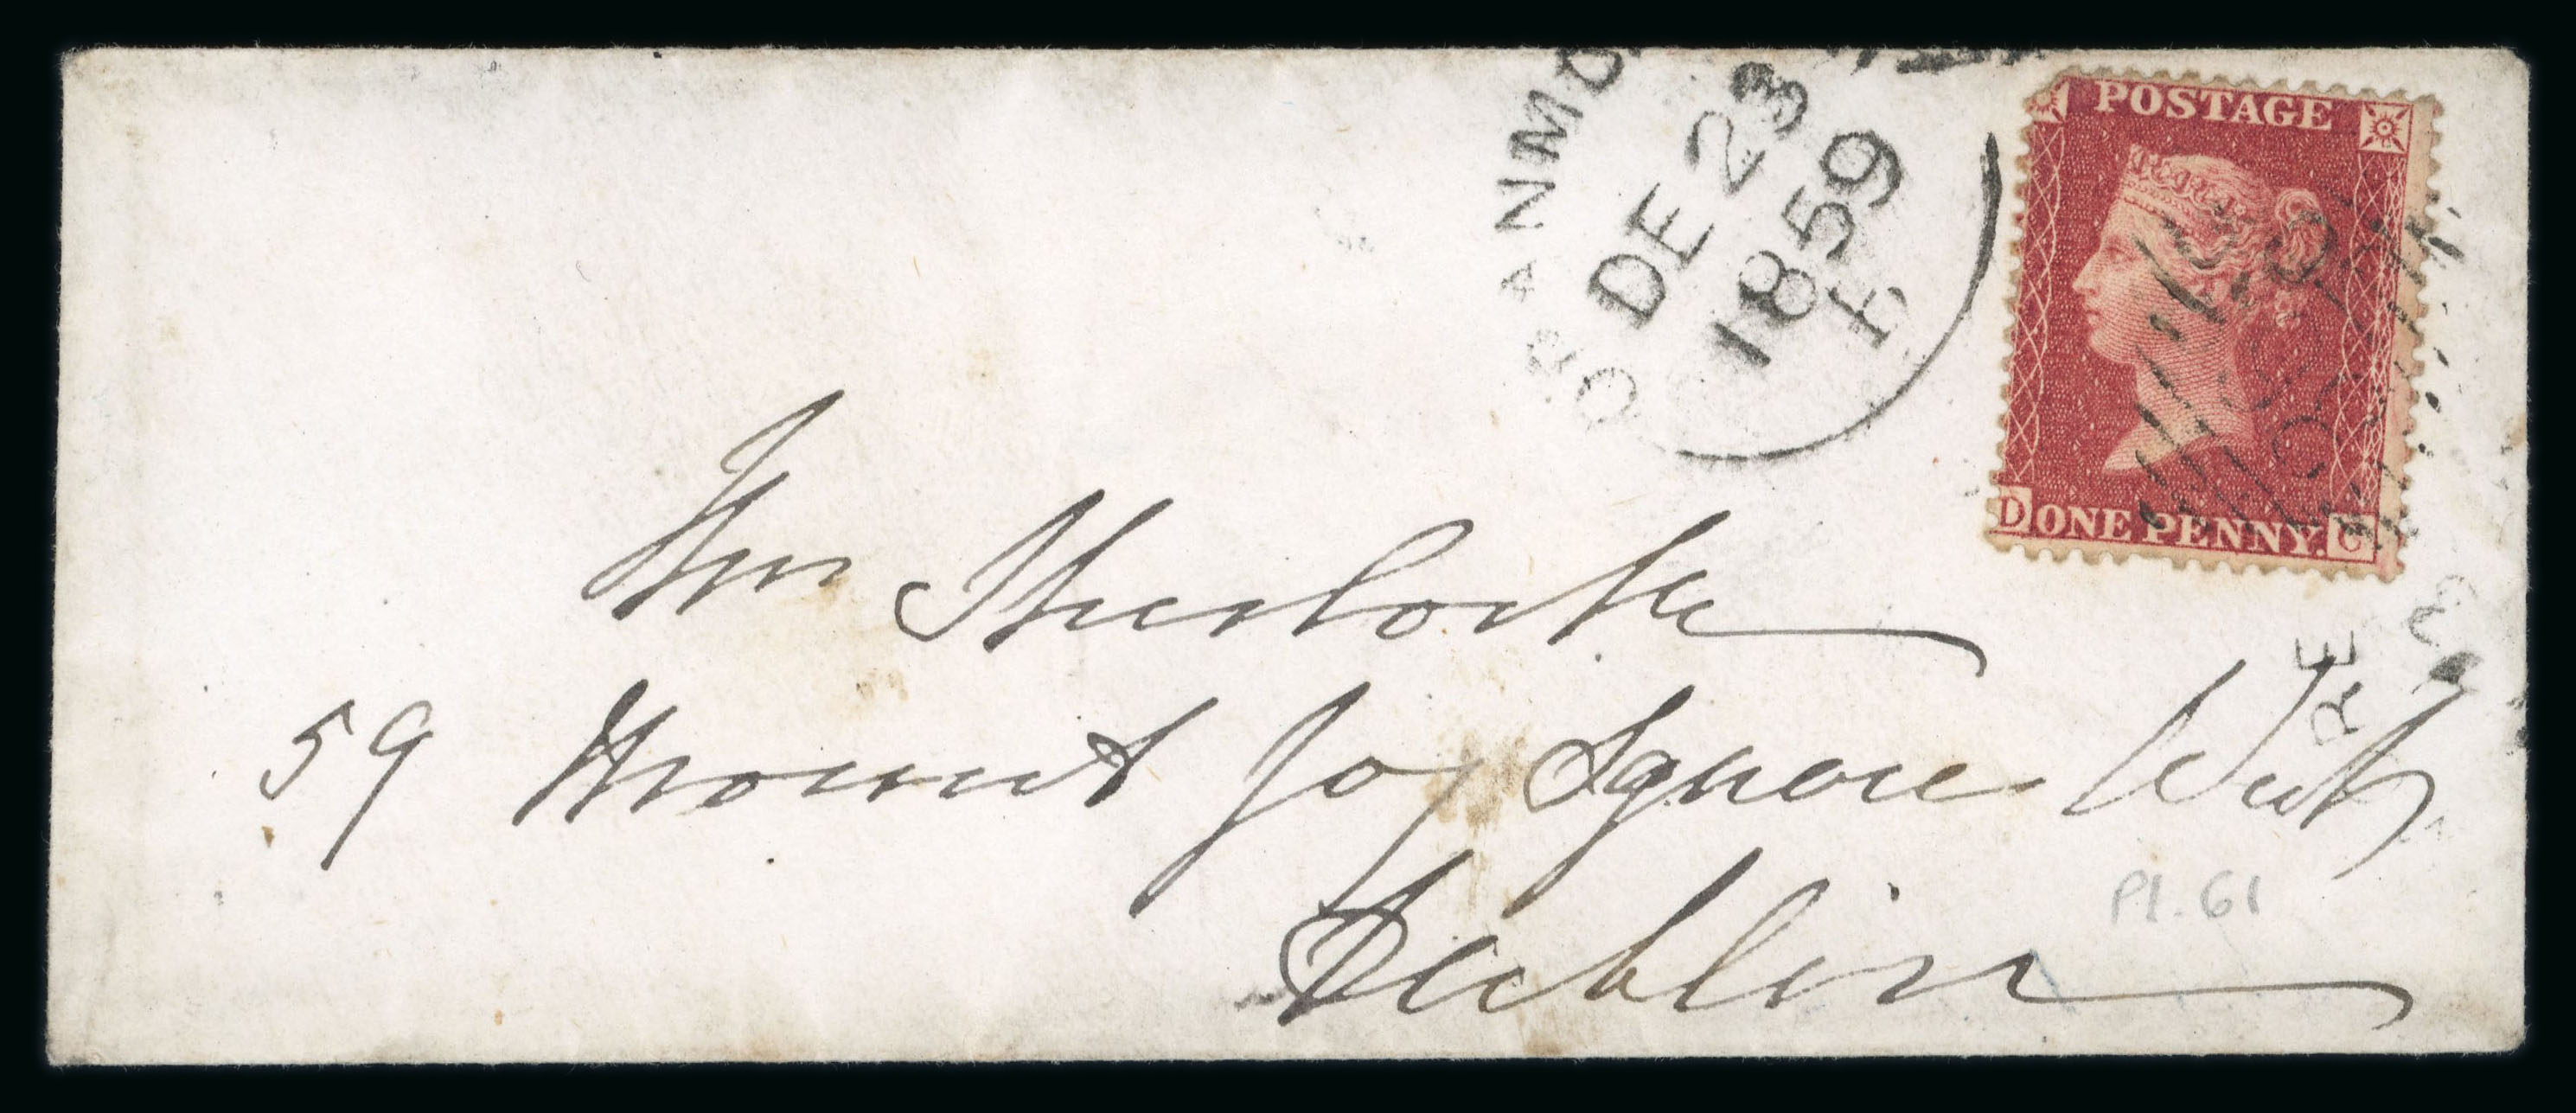 GRANMO
DE 23
1859
F
POSTAGE
D ONE PENNY. C
Mrs Sherlocke
59 Mount Joy Square West
Dublin
Pl. 61